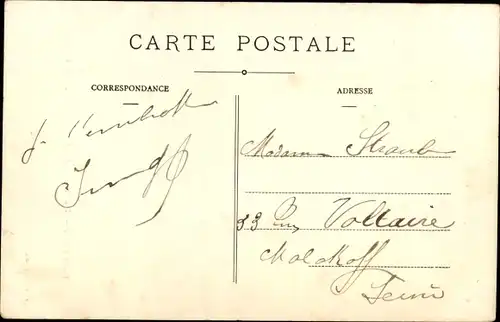 CARTE POSTALE
CORRESPONDANCE
ADRESSE
Madame Straub
33 Rue Voltaire
Malakoff
Seine